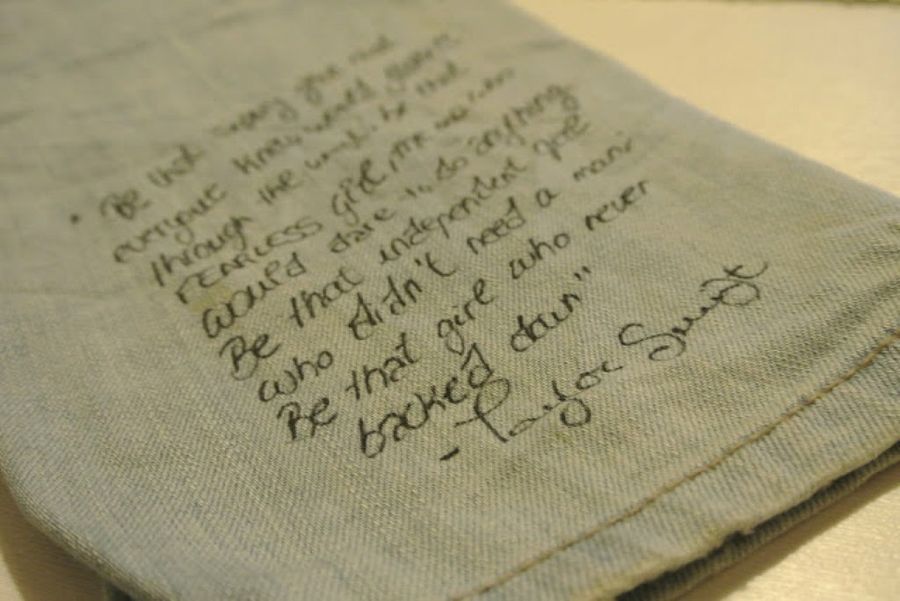 "Be that strong girl that
everyone knew would make it
through the worst, be that
FEARLESS girl, the one who
would dare to do anything
Be that independent girl
who didn't need a man;
Be that girl who never
backed down"
- Taylor Swift